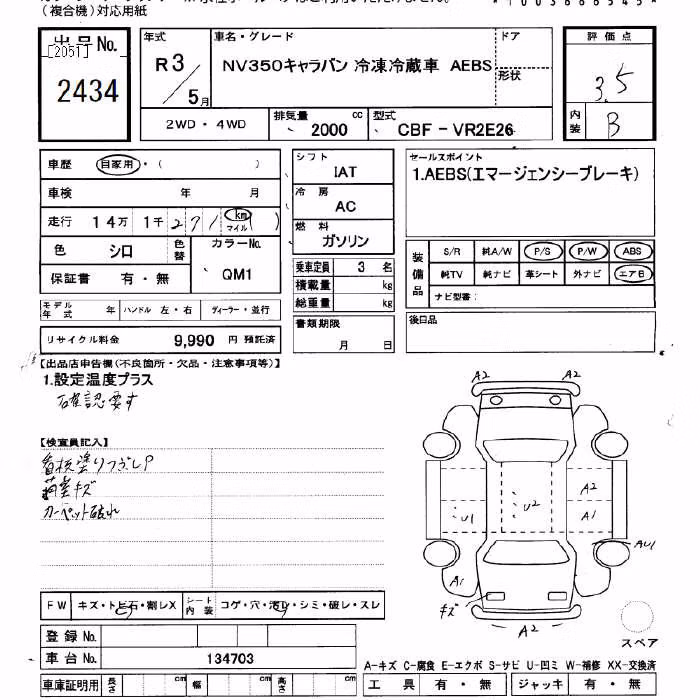 (複合機)対応用紙
出品No.
[2051]
2434
年式
R3/5月
車名・グレード
NV350キャラバン 冷凍冷蔵車 AEBS
ドア
形状
2WD・4WD
排気量
2000 cc
型式
CBF-VR2E26
評価点
3.5
内装
B
車歴 自家用・( )
車検 年 月
走行 14万 1千 271 km マイル ( )
色 シロ 色替
カラーNo.
QM1
保証書 有・無
モデル年式 年 ハンドル 左・右 ディーラー・並行
リサイクル料金 9,990 円 預託済
シフト
IAT
冷房
AC
燃料
ガソリン
乗車定員 3 名
積載量 kg
総重量 kg
書類期限
月 日
セールスポイント
1.AEBS(エマージェンシーブレーキ)
装備品
S/R 純A/W P/S P/W ABS
純TV 純ナビ 革シート 外ナビ エアB
ナビ型番:
後日品
【出品店申告欄(不良箇所・欠品・注意事項等)】
1.設定温度プラス
確認要す
【検査員記入】
看板塗りつぶしP
荷室キズ
カーペット破れ
FW キズ・トビ石・割レX
シート内装 コゲ・穴・汚レ・シミ・破レ・スレ
登録No.
車台No. 134703
車庫証明用 長さ cm 幅 cm 高さ cm
A2
A2
A2
A1
U1
U2
AU1
A1
キズ
A2
スペア
A-キズ C-腐食 E-エクボ S-サビ U-凹ミ W-補修 XX-交換済
工具 有・無 ジャッキ 有・無